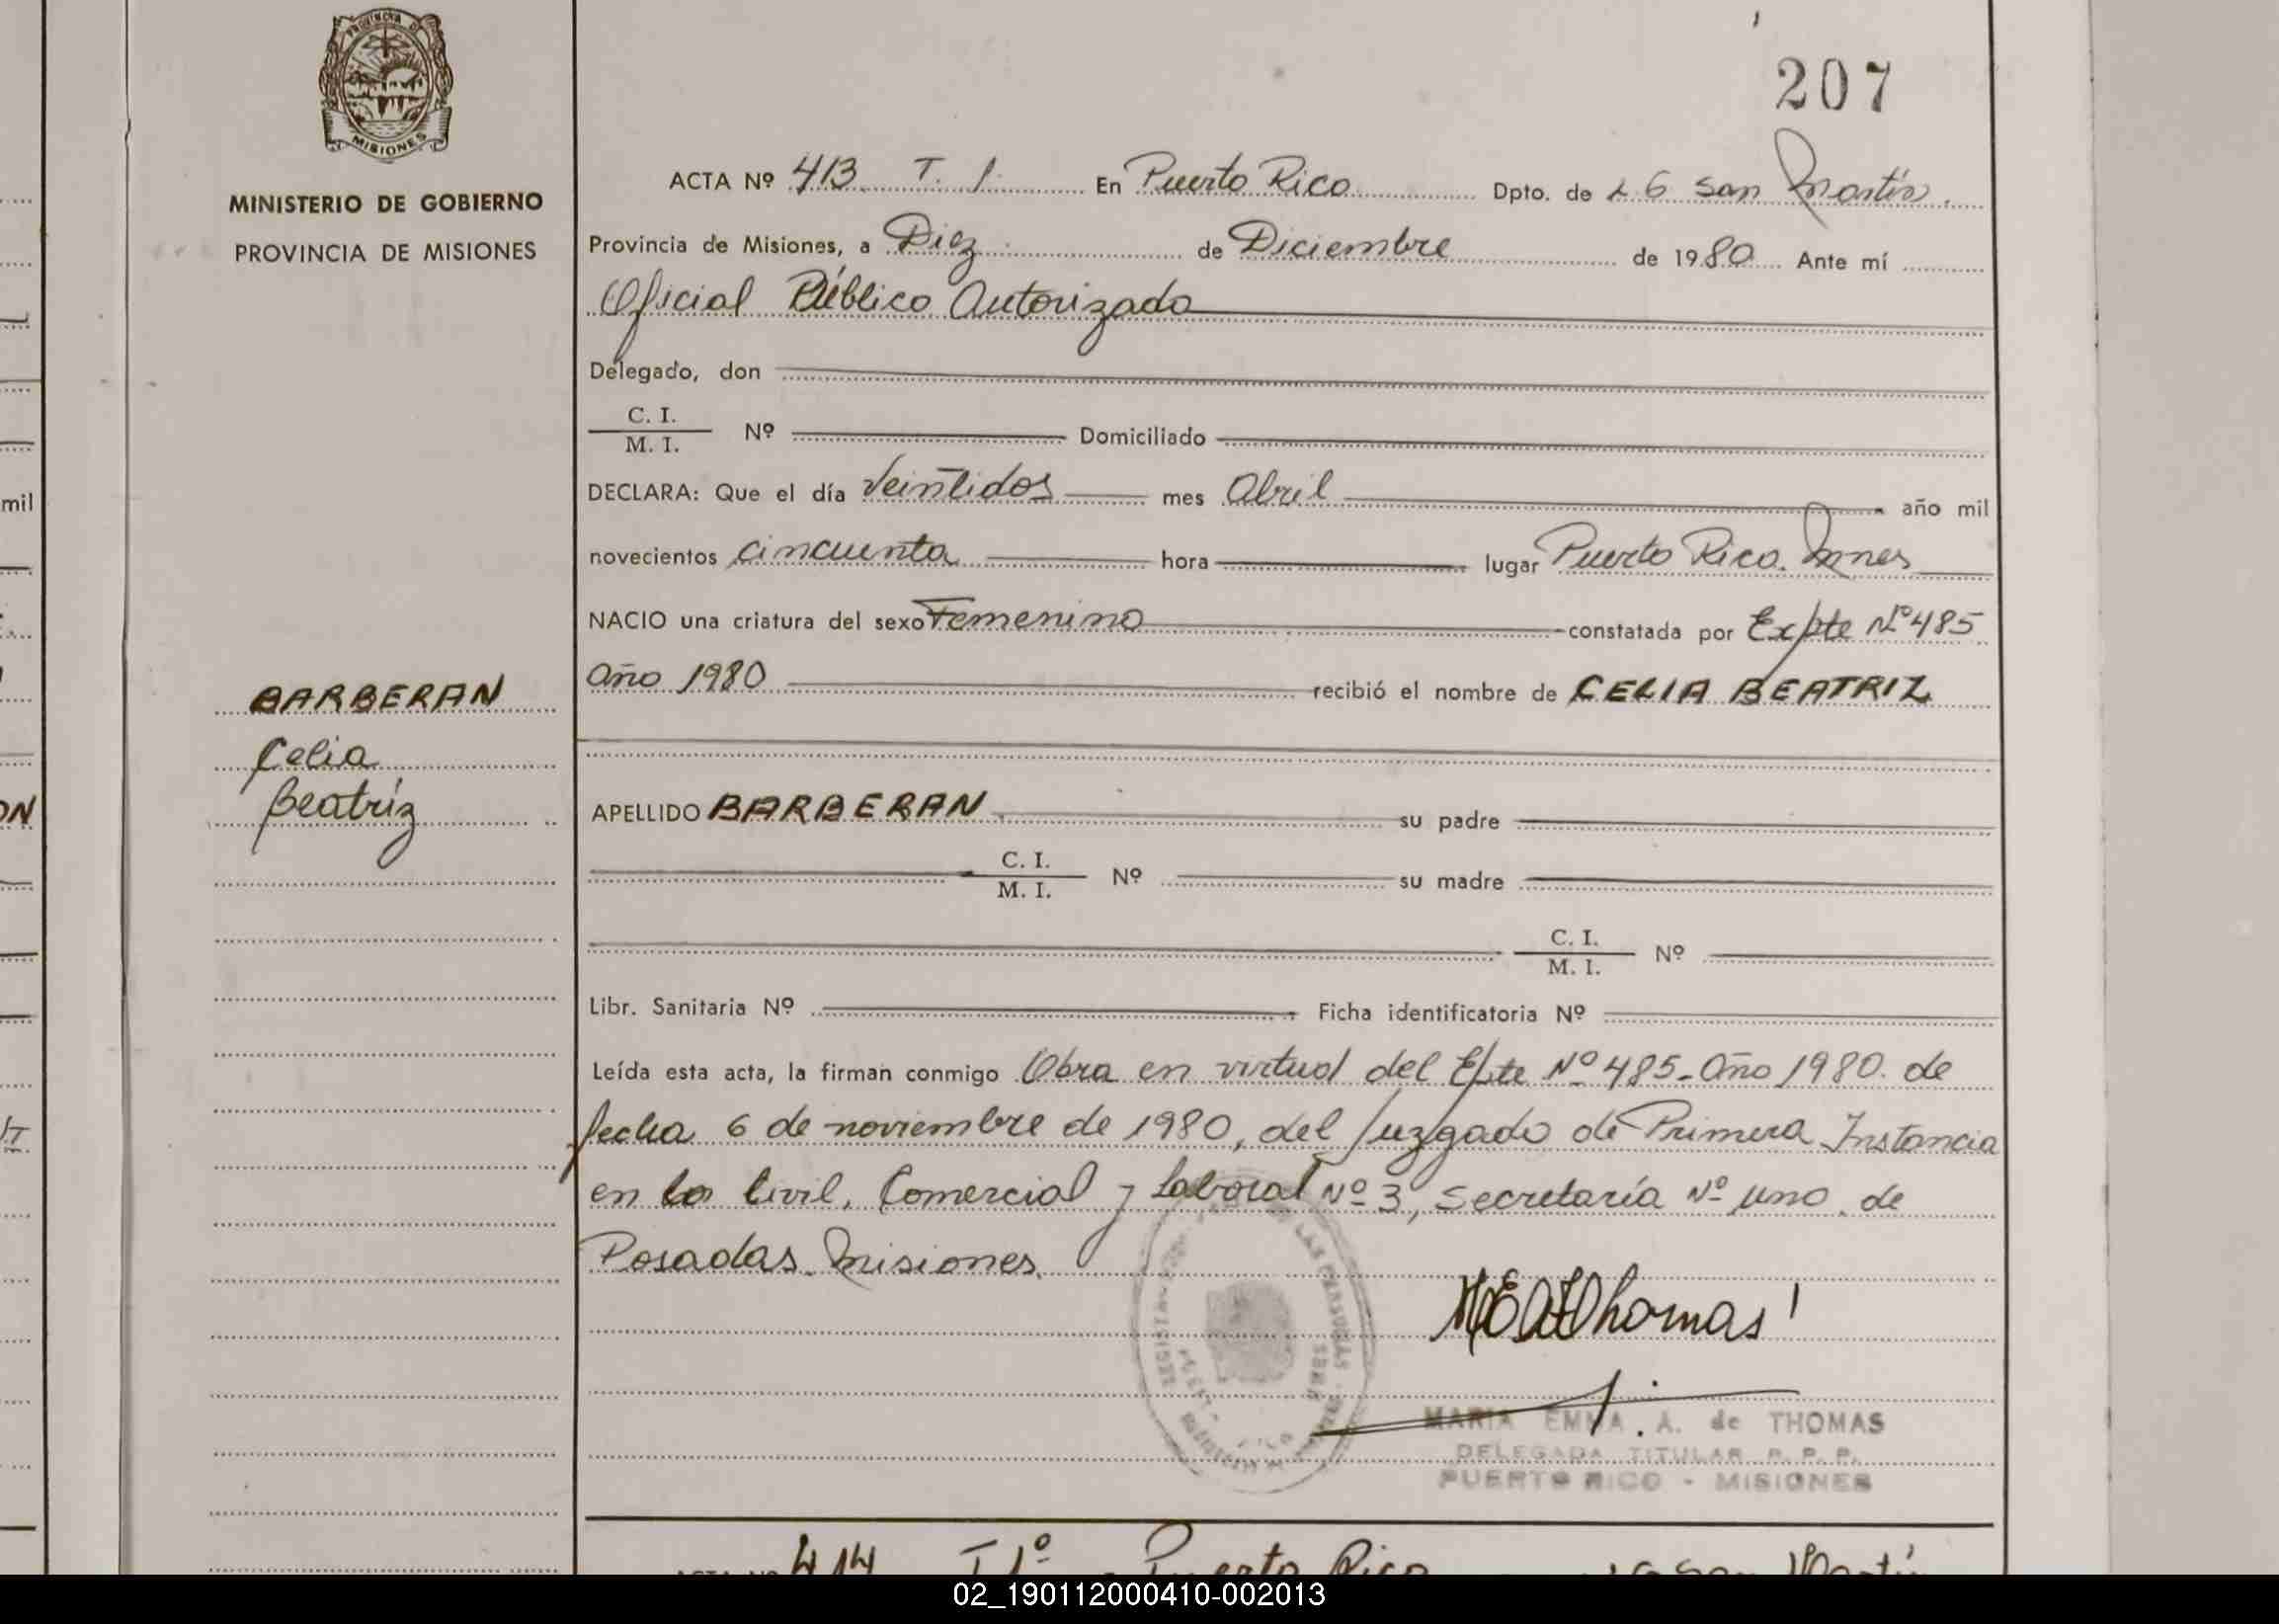 PROVINCIA DE
MISIONES
MINISTERIO DE GOBIERNO
PROVINCIA DE MISIONES
207
ACTA Nº 413 T. 1. En Puerto Rico Dpto. de L G San Martín.
Provincia de Misiones, a Diez de Diciembre de 1980 Ante mí
Oficial Público Autorizado
Delegado, don
C. I.
M. I. Nº Domiciliado
DECLARA: Que el día Veintidos mes Abril año mil
novecientos cincuenta hora lugar Puerto Rico. Mnes
NACIO una criatura del sexo Femenino constatada por Expte Nº 485
Año 1980 recibió el nombre de CELIA BEATRIZ
BARBERAN
Celia
Beatríz
APELLIDO BARBERAN su padre
C. I.
M. I. Nº su madre
C. I.
M. I. Nº
Libr. Sanitaria Nº Ficha identificatoria Nº
Leída esta acta, la firman conmigo Obra en virtud del Epte Nº 485-Año 1980. de
fecha 6 de noviembre de 1980, del Juzgado de Primera Instancia
en lo Civil, Comercial y Laboral Nº 3, Secretaría Nº uno. de
Posadas. Misiones.
Thomas
MARIA EMMA A. de THOMAS
DELEGADA TITULAR R. P. P.
PUERTO RICO - MISIONES
414 T 1º Puerto Rico San Martín
mil
ON
02_190112000410-002013